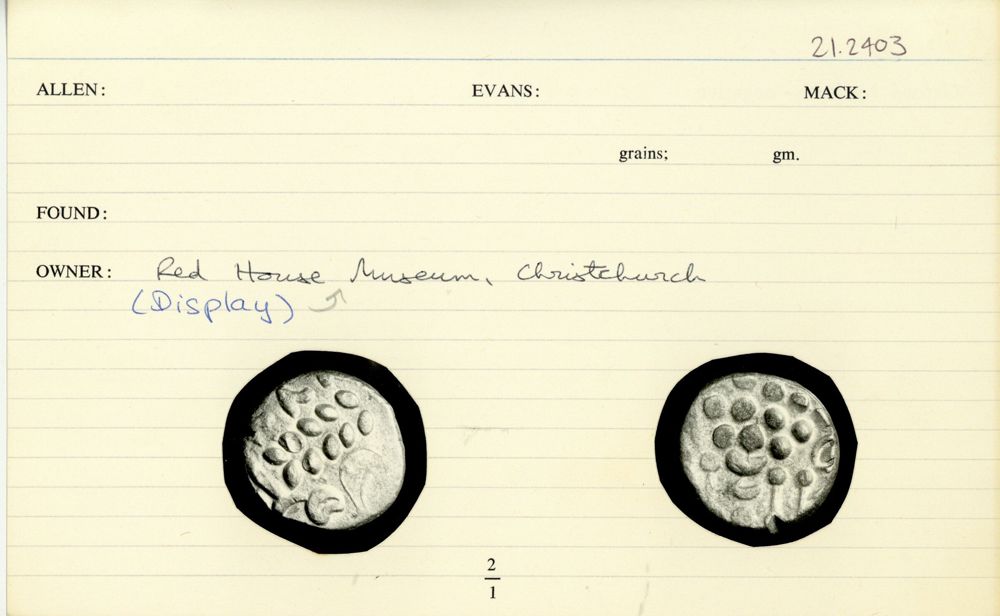 21.2403
ALLEN: EVANS: MACK:
grains; gm.
FOUND:
OWNER: Red House Museum, Christchurch
(Display)
2
1